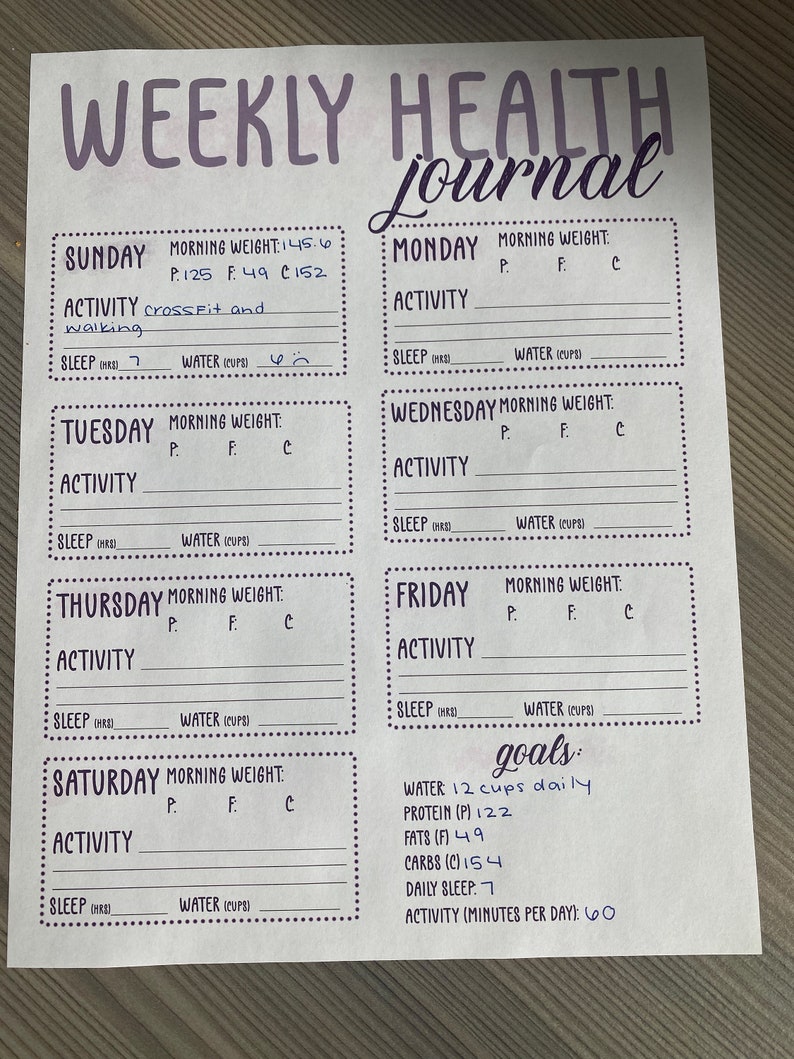 WEEKLY HEALTH
journal
SUNDAY MORNING WEIGHT: 145.6
P. 125 F. 49 C 152
ACTIVITY crossfit and
walking
SLEEP (HRS) 7 WATER (CUPS) 6 :(
MONDAY MORNING WEIGHT:
P. F. C
ACTIVITY
SLEEP (HRS) WATER (CUPS)
TUESDAY MORNING WEIGHT:
P. F. C
ACTIVITY
SLEEP (HRS) WATER (CUPS)
WEDNESDAY MORNING WEIGHT:
P. F. C
ACTIVITY
SLEEP (HRS) WATER (CUPS)
THURSDAY MORNING WEIGHT:
P. F. C
ACTIVITY
SLEEP (HRS) WATER (CUPS)
FRIDAY MORNING WEIGHT:
P. F. C
ACTIVITY
SLEEP (HRS) WATER (CUPS)
SATURDAY MORNING WEIGHT:
P. F. C
ACTIVITY
SLEEP (HRS) WATER (CUPS)
goals:
WATER: 12 cups daily
PROTEIN (P) 122
FATS (F) 49
CARBS (C) 154
DAILY SLEEP: 7
ACTIVITY (MINUTES PER DAY): 60